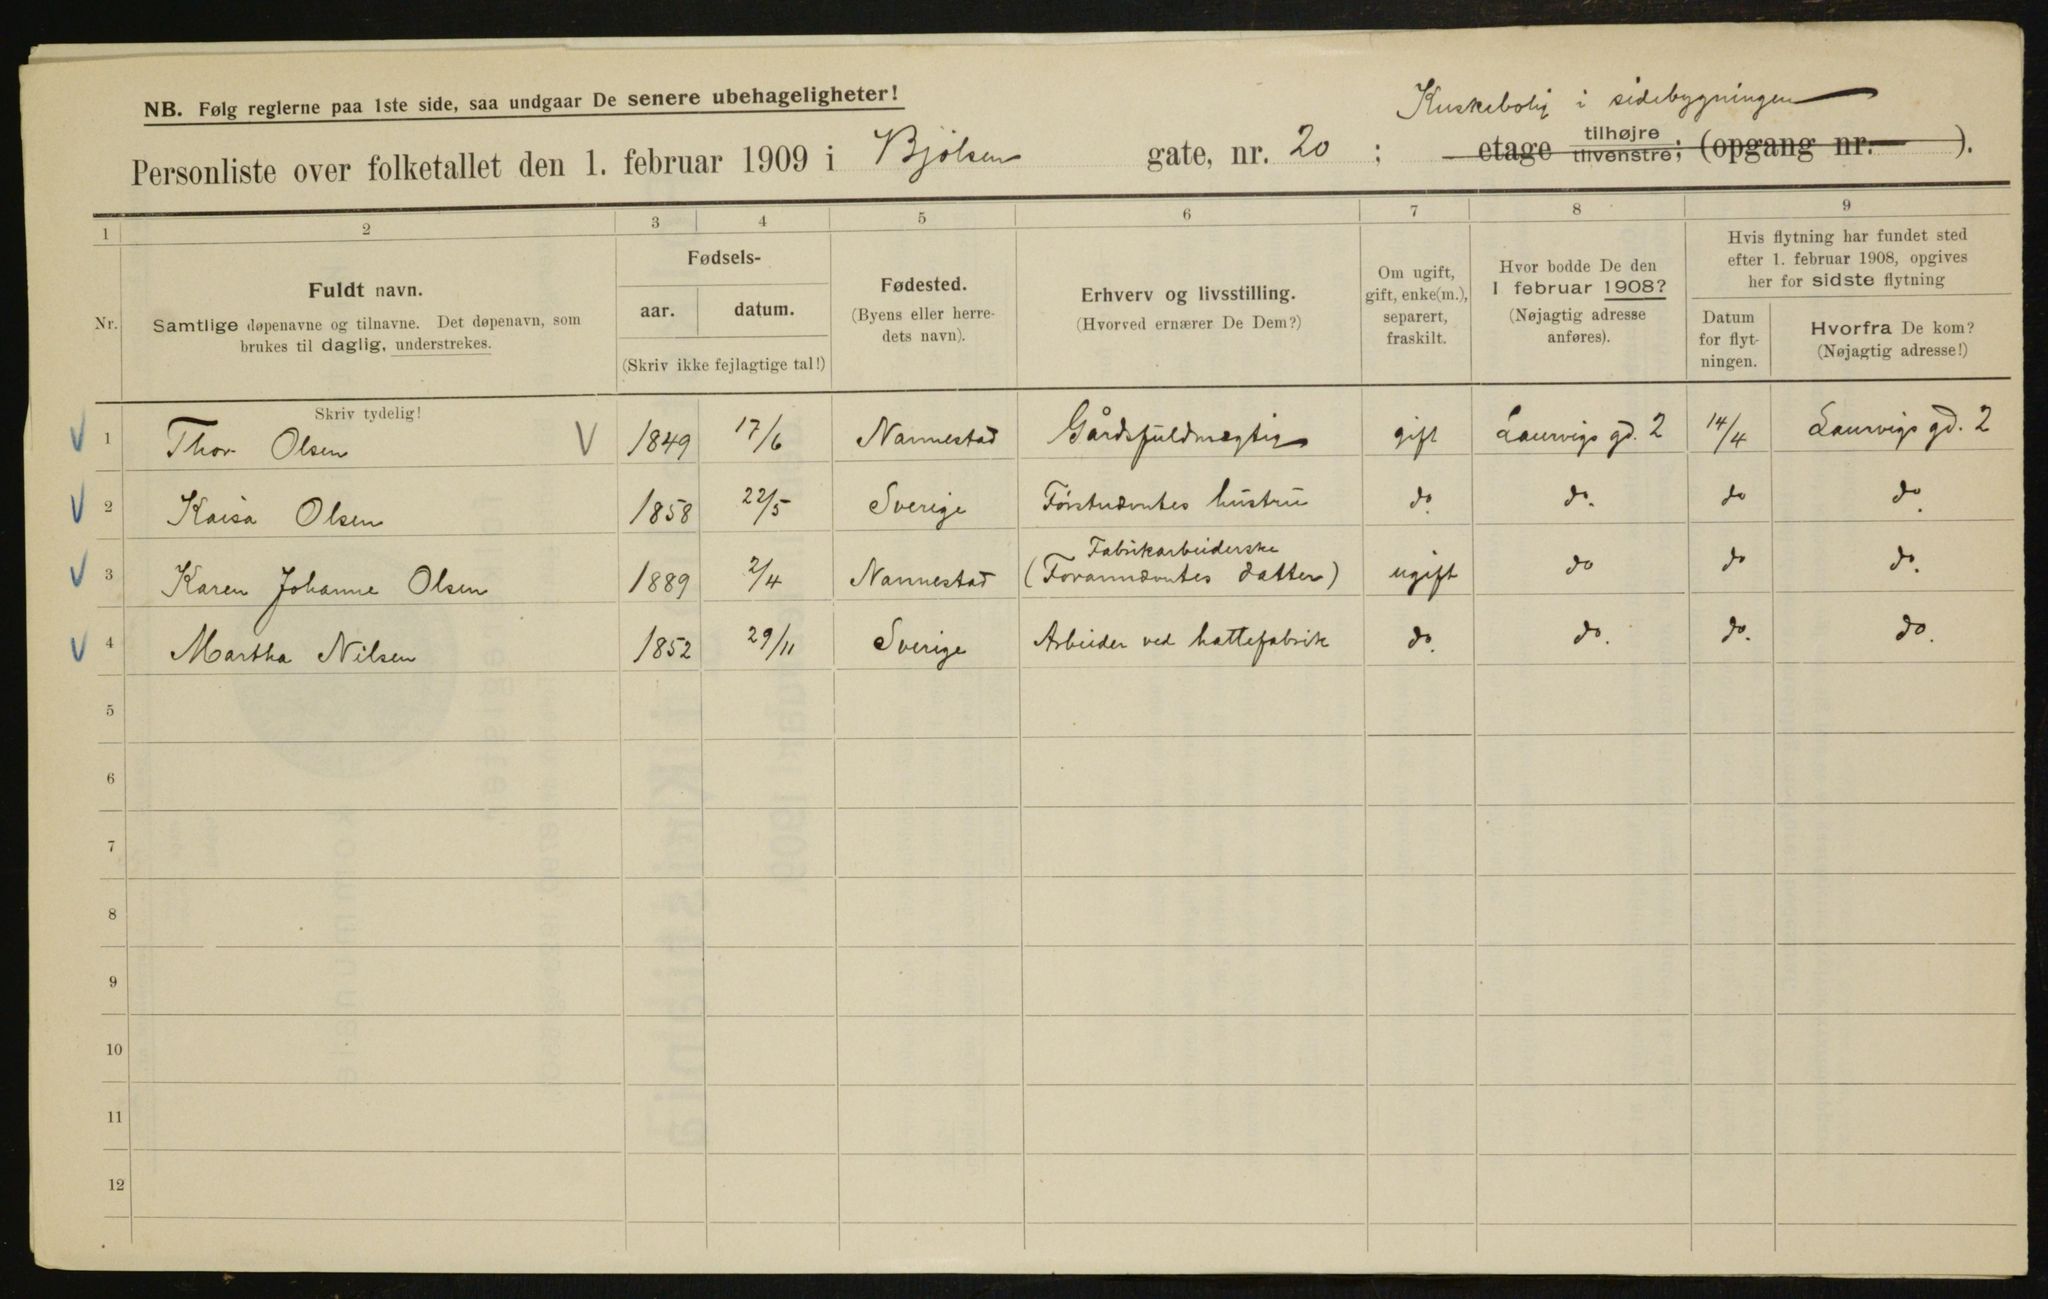 NB. Følg reglerne paa 1ste side, saa undgaar De senere ubehageligheter!
Kuskebolig i sidebygningen
Personliste over folketallet den 1. februar 1909 i Bjølsen gate, nr. 20 ; etage tilhøjre tilvenstre; (opgang nr. ).
1 2 3 4 5 6 7 8 9
Nr.
Fuldt navn.
Samtlige døpenavne og tilnavne. Det døpenavn, som
brukes til daglig, understrekes.
Fødsels-
aar. datum.
(Skriv ikke fejlagtige tal!)
Fødested.
(Byens eller herre-
dets navn).
Erhverv og livsstilling.
(Hvorved ernærer De Dem?)
Om ugift,
gift, enke(m.),
separert,
fraskilt.
Hvor bodde De den
1 februar 1908?
(Nøjagtig adresse
anføres).
Hvis flytning har fundet sted
efter 1. februar 1908, opgives
her for sidste flytning
Datum
for flyt-
ningen.
Hvorfra De kom?
(Nøjagtig adresse!)
Skriv tydelig!
V 1 Thor Olsen V 1849 17/6 Nannestad Gårdsfuldmægtig gift Laurvigs gd. 2 14/4 Laurvigs gd. 2
V 2 Kaisa Olsen 1858 22/5 Sverige Førstnævntes hustru do. do. do do.
Fabrikarbeiderske
V 3 Karen Johanne Olsen 1889 2/4 Nannestad (Forannævntes datter) ugift do do do.
V 4 Martha Nilsen 1852 29/11 Sverige Arbeider ved hattefabrik do. do. do. do.
5
6
7
8
9
10
11
12